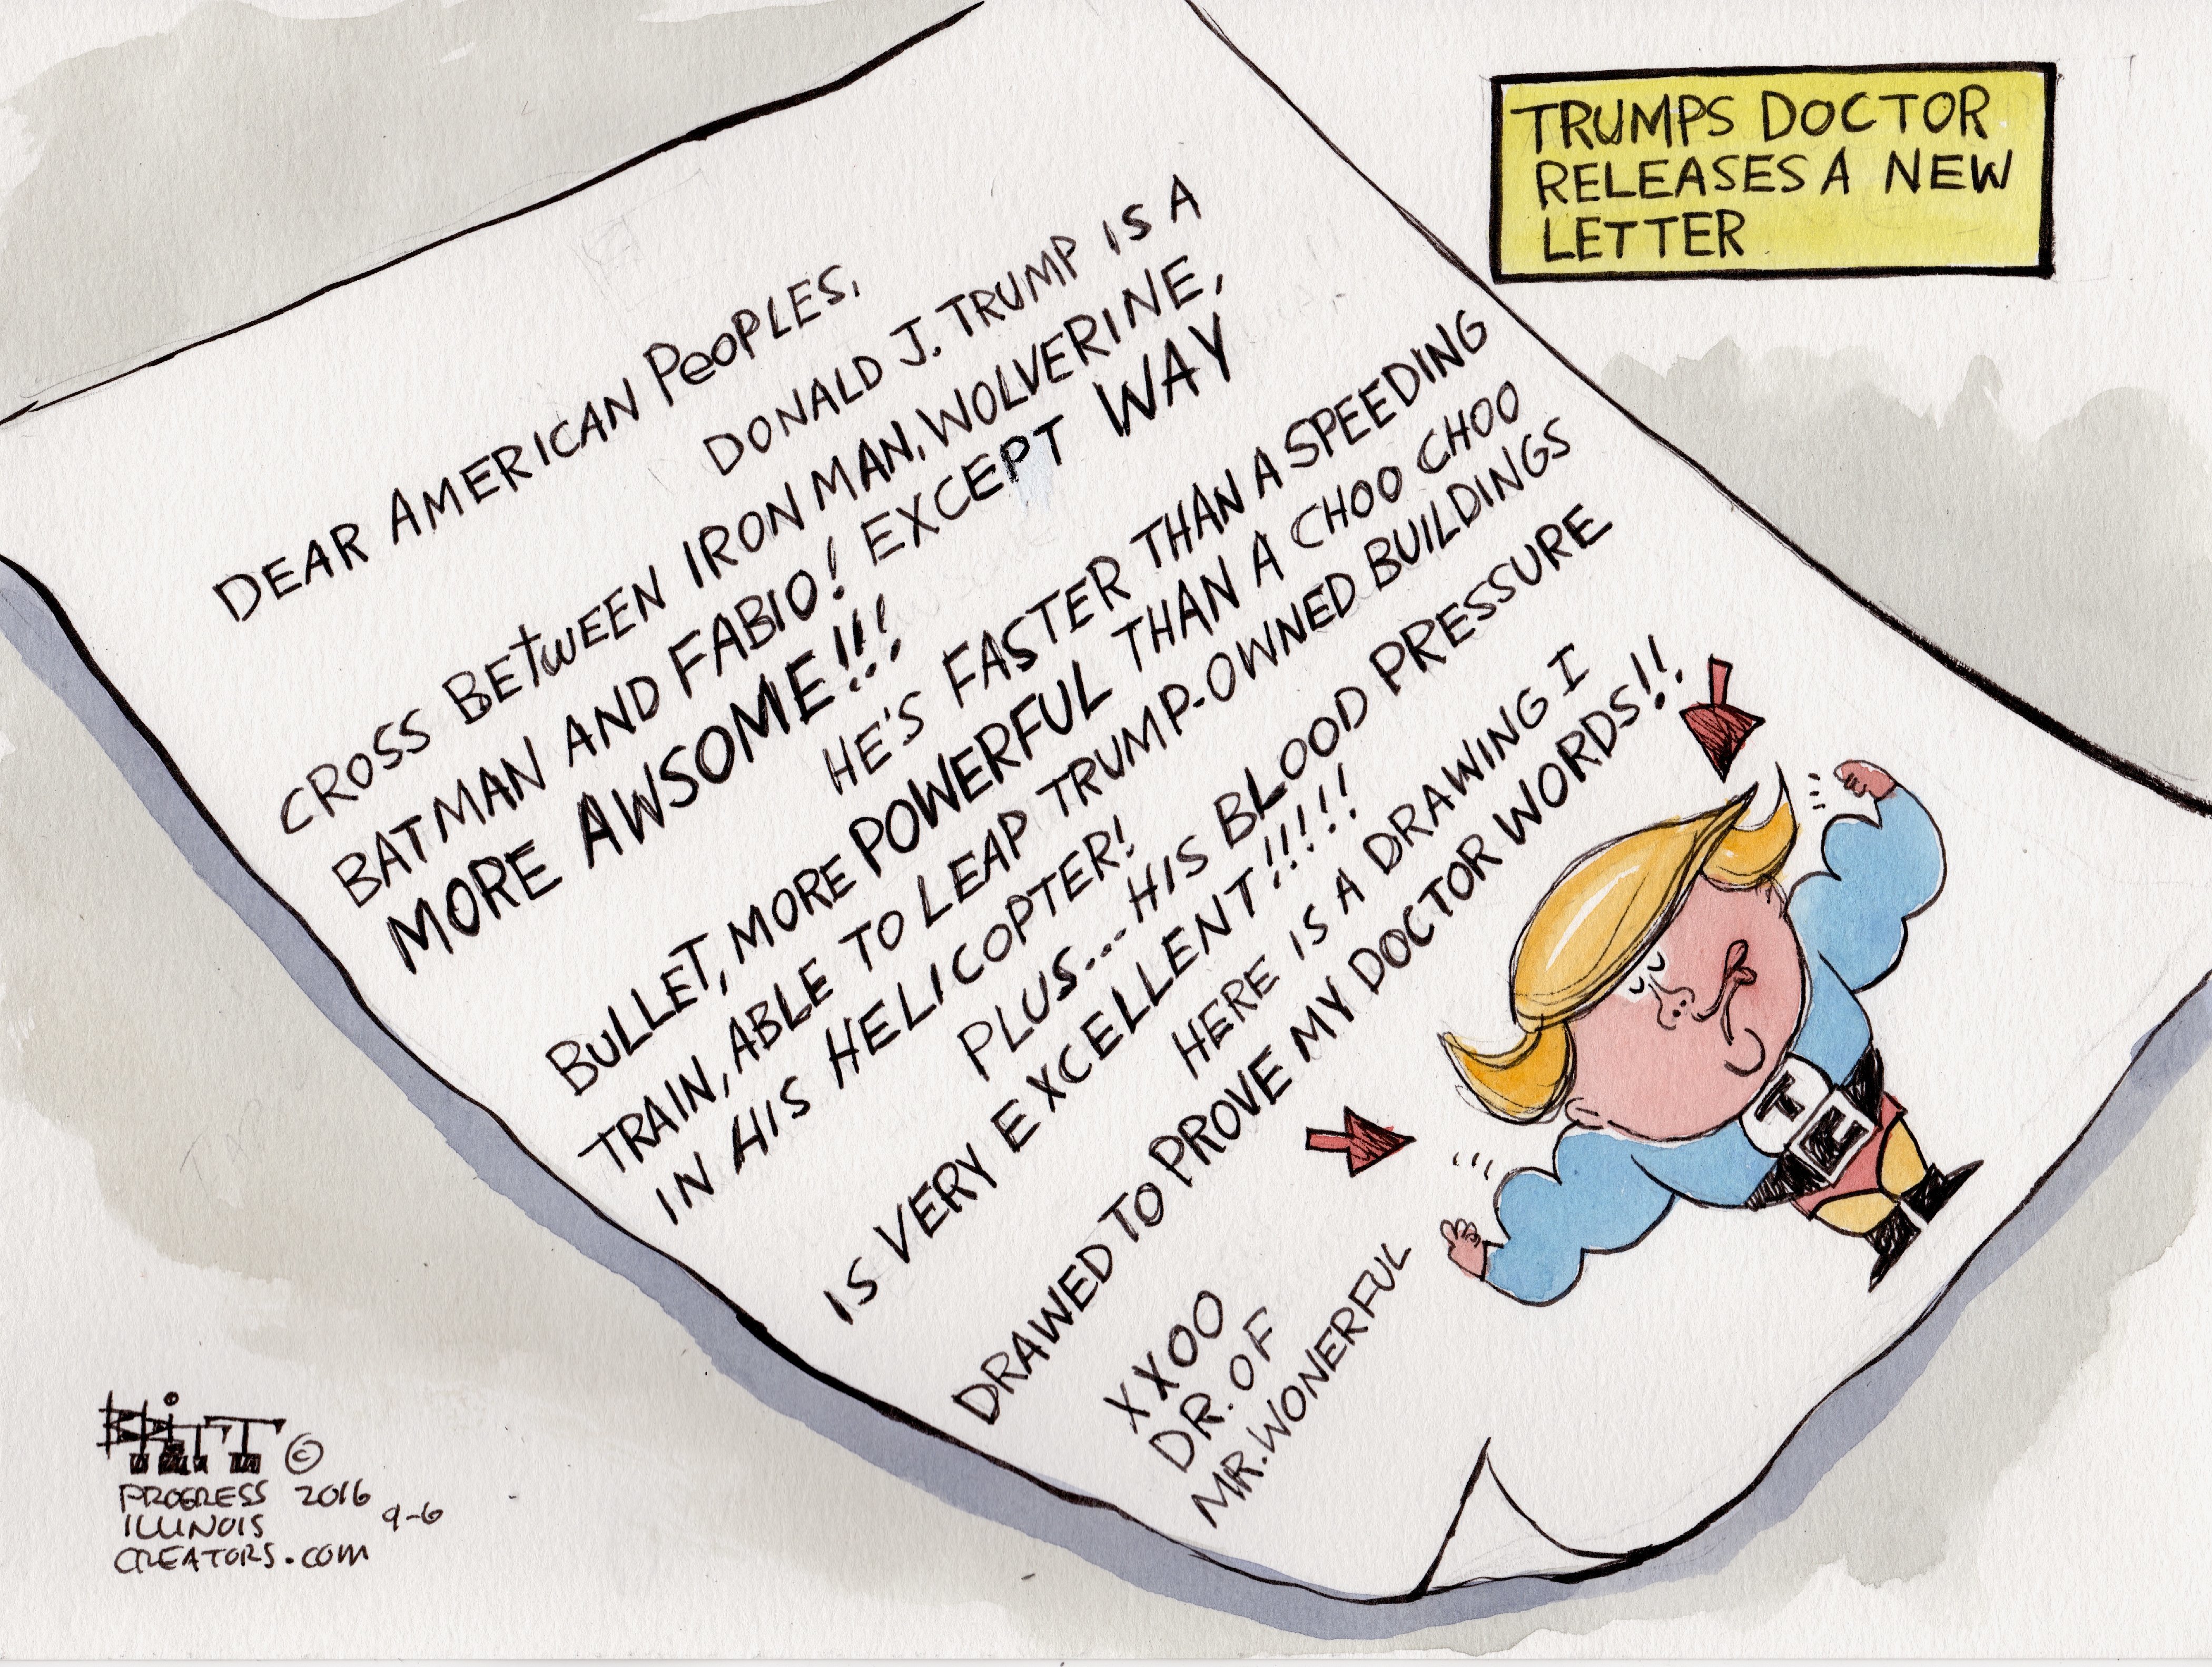 TRUMPS DOCTOR
RELEASES A NEW
LETTER
DEAR AMERICAN PEOPLES,
DONALD J. TRUMP IS A
CROSS BETWEEN IRON MAN, WOLVERINE,
BATMAN AND FABIO! EXCEPT WAY
MORE AWSOME!!!
HE'S FASTER THAN A SPEEDING
BULLET, MORE POWERFUL THAN A CHOO CHOO
TRAIN, ABLE TO LEAP TRUMP-OWNED BUILDINGS
IN HIS HELICOPTER!
PLUS... HIS BLOOD PRESSURE
IS VERY EXCELLENT!!!!!!
HERE IS A DRAWING I
DRAWED TO PROVE MY DOCTOR WORDS!!
XXOO
DR. OF
MR. WONERFUL
T
HITT ©
PROGRESS 2016
ILLINOIS 9-6
CREATORS.COM